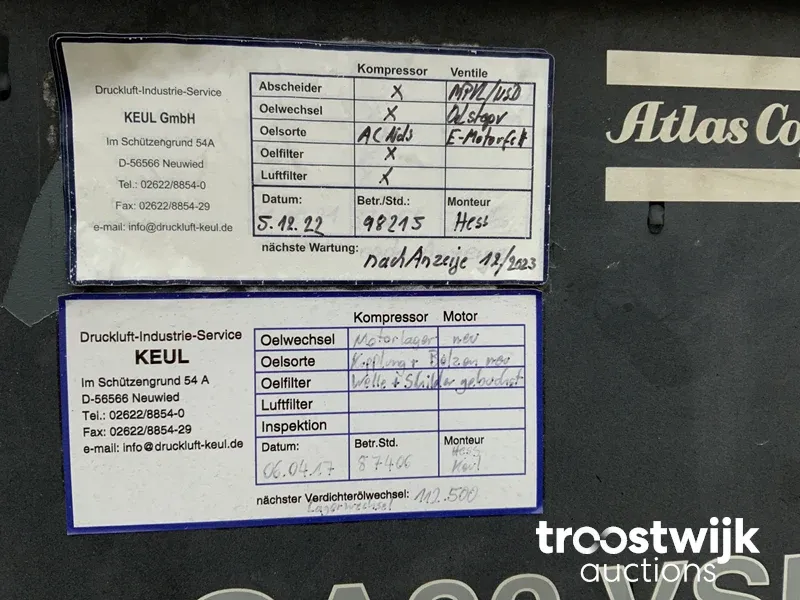 Kompressor Ventile
Druckluft-Industrie-Service
KEUL GmbH
Im Schützengrund 54A
D-56566 Neuwied
Tel.: 02622/8854-0
Fax: 02622/8854-29
e-mail: info@druckluft-keul.de
Abscheider X MPVL/USD
Oelwechsel X Oelstopv
Oelsorte AC Nds E-Motorfett
Oelfilter X
Luftfilter X
Datum: Betr./Std.: Monteur
5.12.22 98215 Hess
nächste Wartung: nach Anzeije 12/2023
Atlas Co
Kompressor Motor
Druckluft-Industrie-Service
KEUL
Im Schützengrund 54 A
D-56566 Neuwied
Tel.: 02622/8854-0
Fax: 02622/8854-29
e-mail: info@druckluft-keul.de
Oelwechsel Motorlager neu
Oelsorte Kupplung + Bolzen neu
Oelfilter Welle + Schilder gebuchst
Luftfilter
Inspektion
Datum: Betr.Std. Monteur
06.04.17 87406 Hess
Keul
nächster Verdichterölwechsel: 112.500
Lagerwechsel
troostwijk
auctions